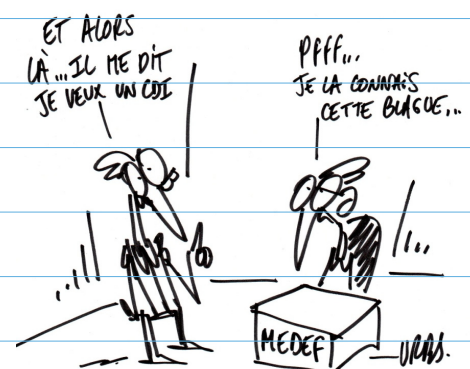 ET ALORS
LÀ...IL ME DIT
JE VEUX UN CDI
Pfff...
JE LA CONNAIS
CETTE BLAGUE...
MEDEF